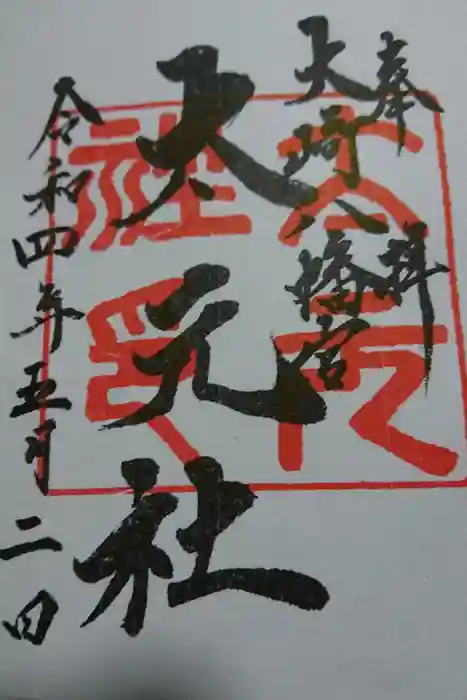 奉拝
大崎八幡宮
大元社
令和四年五月二日
大元社印